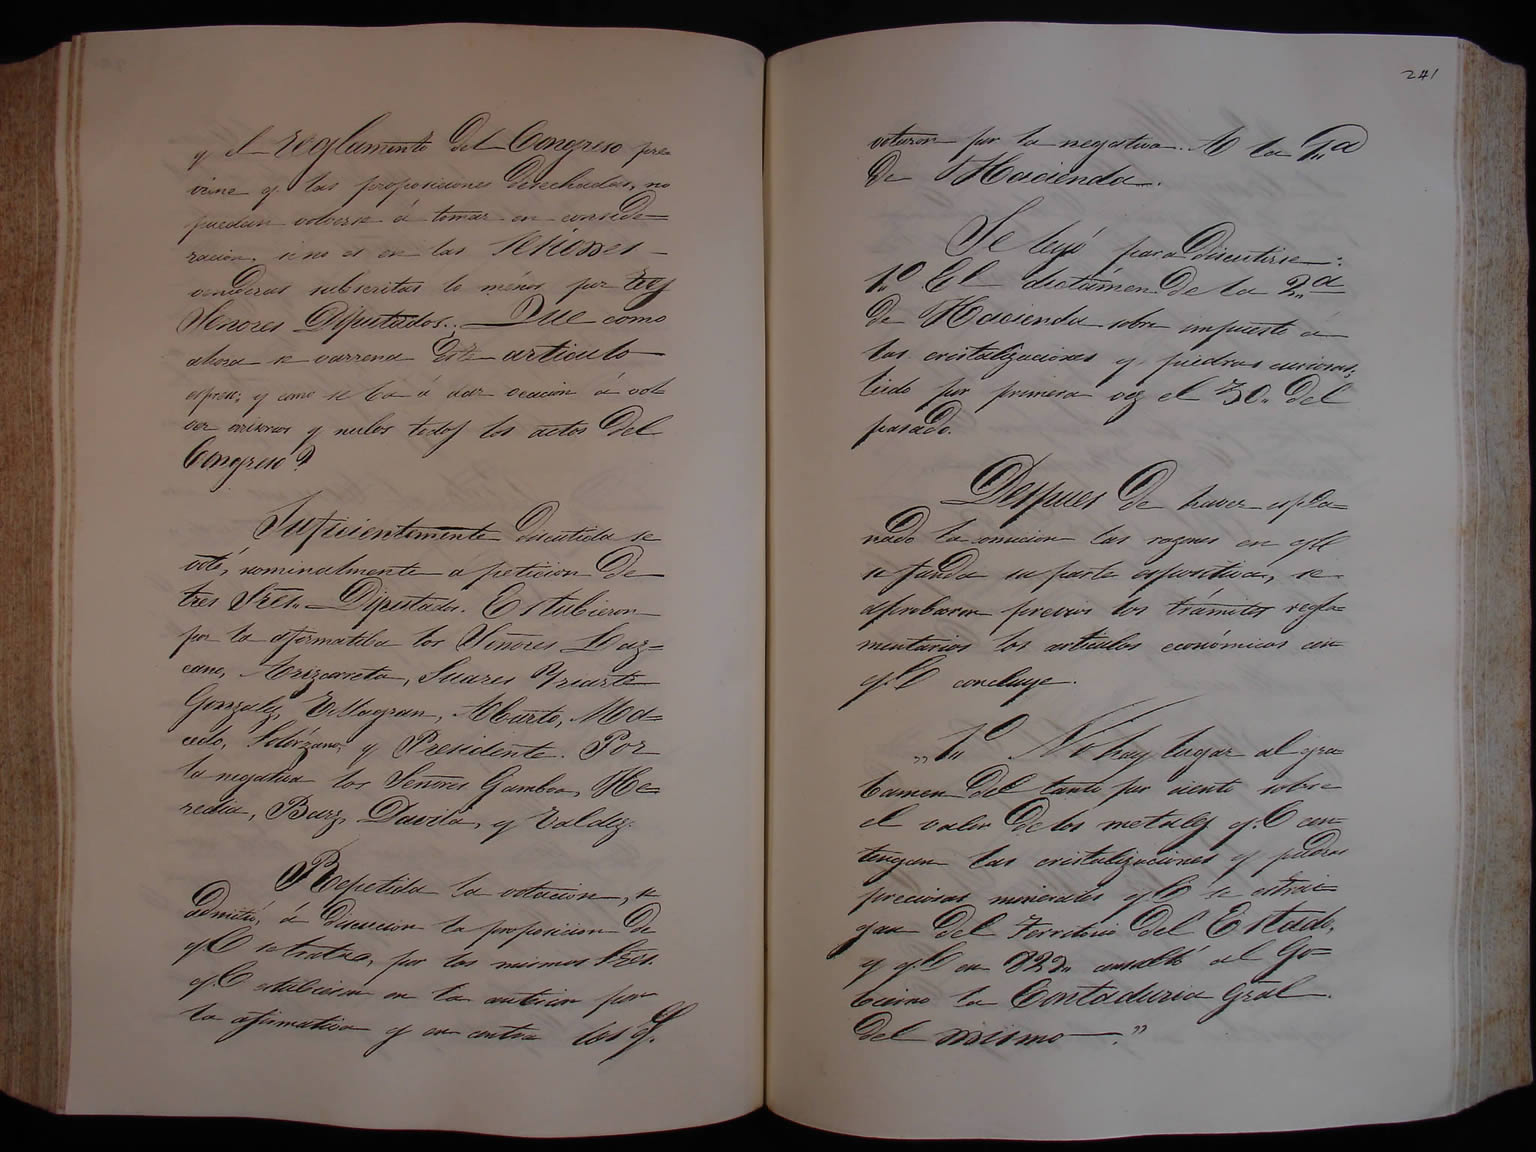 y el reglamento del Congreso pre=
viene q. las proposiciones desechadas, no
puedan volverse á tomar en conside=
racion, si no es en las sesiones
venideras subscritas lo ménos por tres
Señores Diputados. Que como
ahora se barrena este articulo
espreso; y como se ba á dar ocacion á vol
ver irrisorios y nulos todos los actos del
Congreso?
Suficientemente discutida se
votó, nominalmente a peticion de
tres Sres. Diputados. Estubieron
por la afirmatiba los Señores Laz=
cano, Arizcorreta, Suares Yriarte
Gonzalez, Villagran, Aburto, Ma=
cedo, Solórzano, y Presidente. Por
la negativa los Señores Gamboa, He=
redia, Barz, Davila, y Valdez.
Repetida la votacion, se
admitió, á discucion la proposicion de
q.e se trataba, por los mismos Sres.
q.e estubieron en la anterior por
la afirmativa y en contra los q.
241
votaron por la negativa. A la 1.a
de Hacienda.
Se leyó para discutirse:
1.o El dictámen de la 2.a
de Hacienda sobre impuesto á
las cristalizaciones y piedras curiosas,
leido por primera vez el 30. del
pasado.
Despues de haver espla=
nado la comicion las razones en q.e
se funda su parte espositiva, se
aprobaron previos los trámites regla=
mentarios los articulos económicos con
q.e concluye.
„1.o No hay lugar al gra
bamen del tanto por ciento sobre
el valor de los metales q.e con=
tengan las cristalizaciones y piedras
preciosas minerales q.e se estrai=
gan del Territorio del Estado,
y q.e en 829. consultó al Go=
bierno la Contaduria Gral.
del mismo."